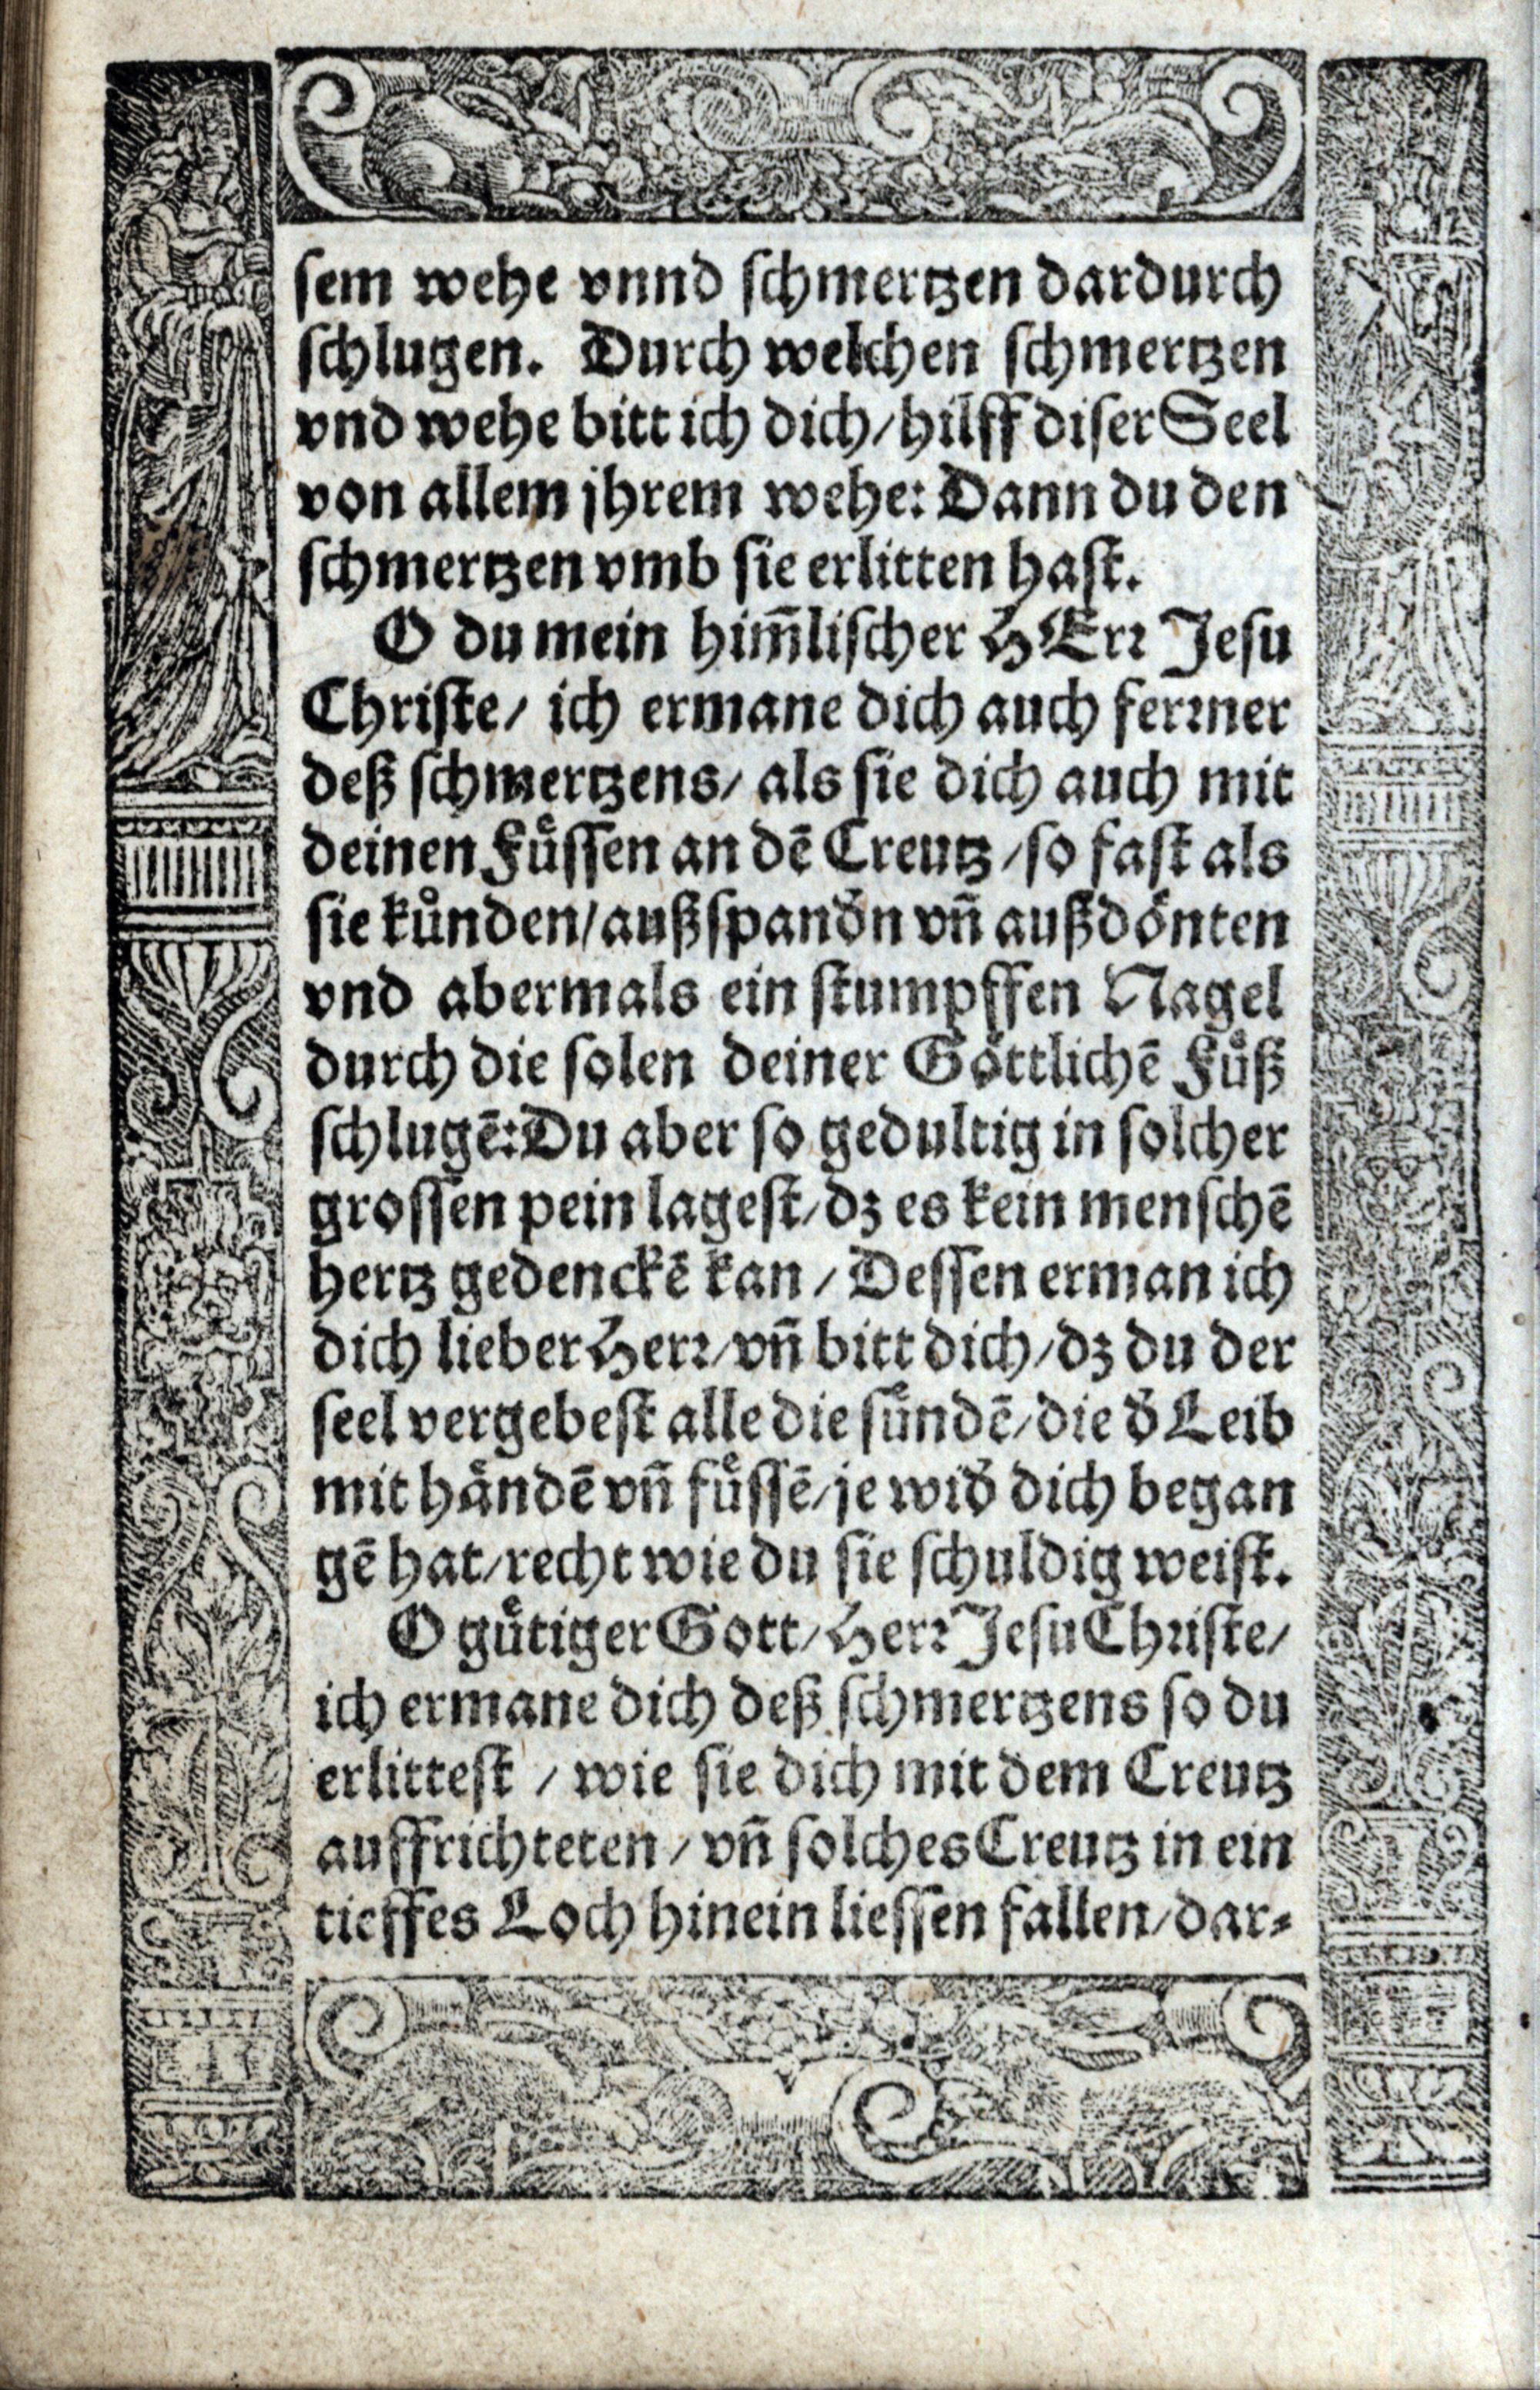 sem wehe vnnd schmertzen dardurch
schlugen. Durch welchen schmertzen
vnd wehe bitt ich dich/ hilff diser Seel
von allem jhrem wehe: Dann du den
schmertzen vmb sie erlitten hast.
O du mein him̄lischer HErr Jesu
Christe/ ich ermane dich auch ferrner
deß schmertzens/ als sie dich auch mit
deinen Fuͤssen an dē Creutz/ so fast als
sie kuͦnden/ außspandn̄ vn̄ außdoͤnten
vnd abermals ein stumpffen Nagel
durch die solen deiner Goͤttlichē Fuͤß
schlugē: Du aber so gedultig in solcher
grossen pein lagest/ dz es kein menschē
hertz gedenckē kan / Dessen erman ich
dich lieber Herr/ vn̄ bitt dich/ dz du der
seel vergebest alle die suͤndē/ die d̄ Leib
mit haͤndē vn̄ fuͤssē/ je wid̄ dich began
gē hat/ recht wie du sie schuldig weist.
O guͤtiger Gott/ Herr Jesu Christe/
ich ermane dich deß schmertzens so du
erlittest / wie sie dich mit dem Creutz
auffrichteten / vn̄ solches Creutz in ein
tieffes Loch hinein liessen fallen/ dar⸗